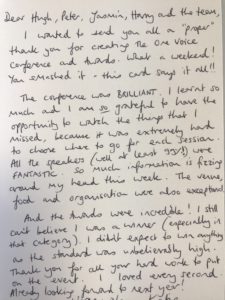 Dear Hugh, Peter, Jasmin, Harry and the team,
I wanted to send you all a "proper"
thank you for creating the One Voice
Conference and Awards. What a weekend!
You smashed it - this card says it all!!
The conference was BRILLIANT. I learnt so
much and I am so grateful to have the
opportunity to watch the things that I
missed, because it was extremely hard
to choose where to go for each session.
All the speakers (well at least 99%) were
FANTASTIC. So much information is fizzing
around my head this week. The venue,
food and organisation were also exceptional
And the Awards were incredible! I still
can't believe I was a winner (especially in
that category). I didn't expect to win anything
as the standard was unbelievably high.
Thank you for all your hard work to put
on the event. I loved every second.
Already looking forward to next year!